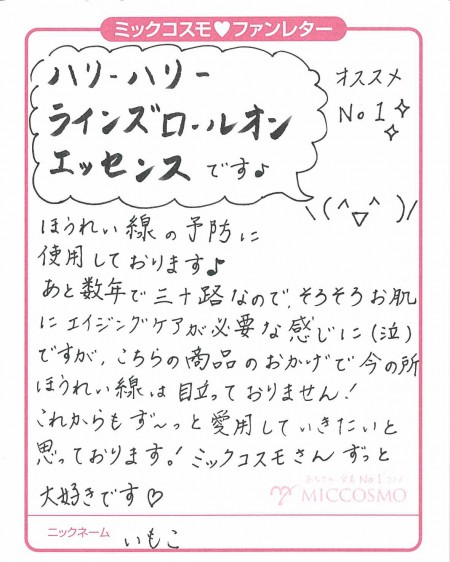 ミックコスモ♥ファンレター
ハリーハリー
ラインズロールオン
エッセンスです♪
オススメ
No1✧✧
\(^▽^)/
ほうれい線の予防に
使用しております♪
あと数年で三十路なので、そろそろお肌
にエイジングケアが必要な感じに(泣)
ですが、こちらの商品のおかげで今の所
ほうれい線は目立っておりません!
これからもず〜っと愛用していきたいと
思っております!ミックコスモさんずっと
大好きです♡
No1
MICCOSMO
ニックネーム いもこ